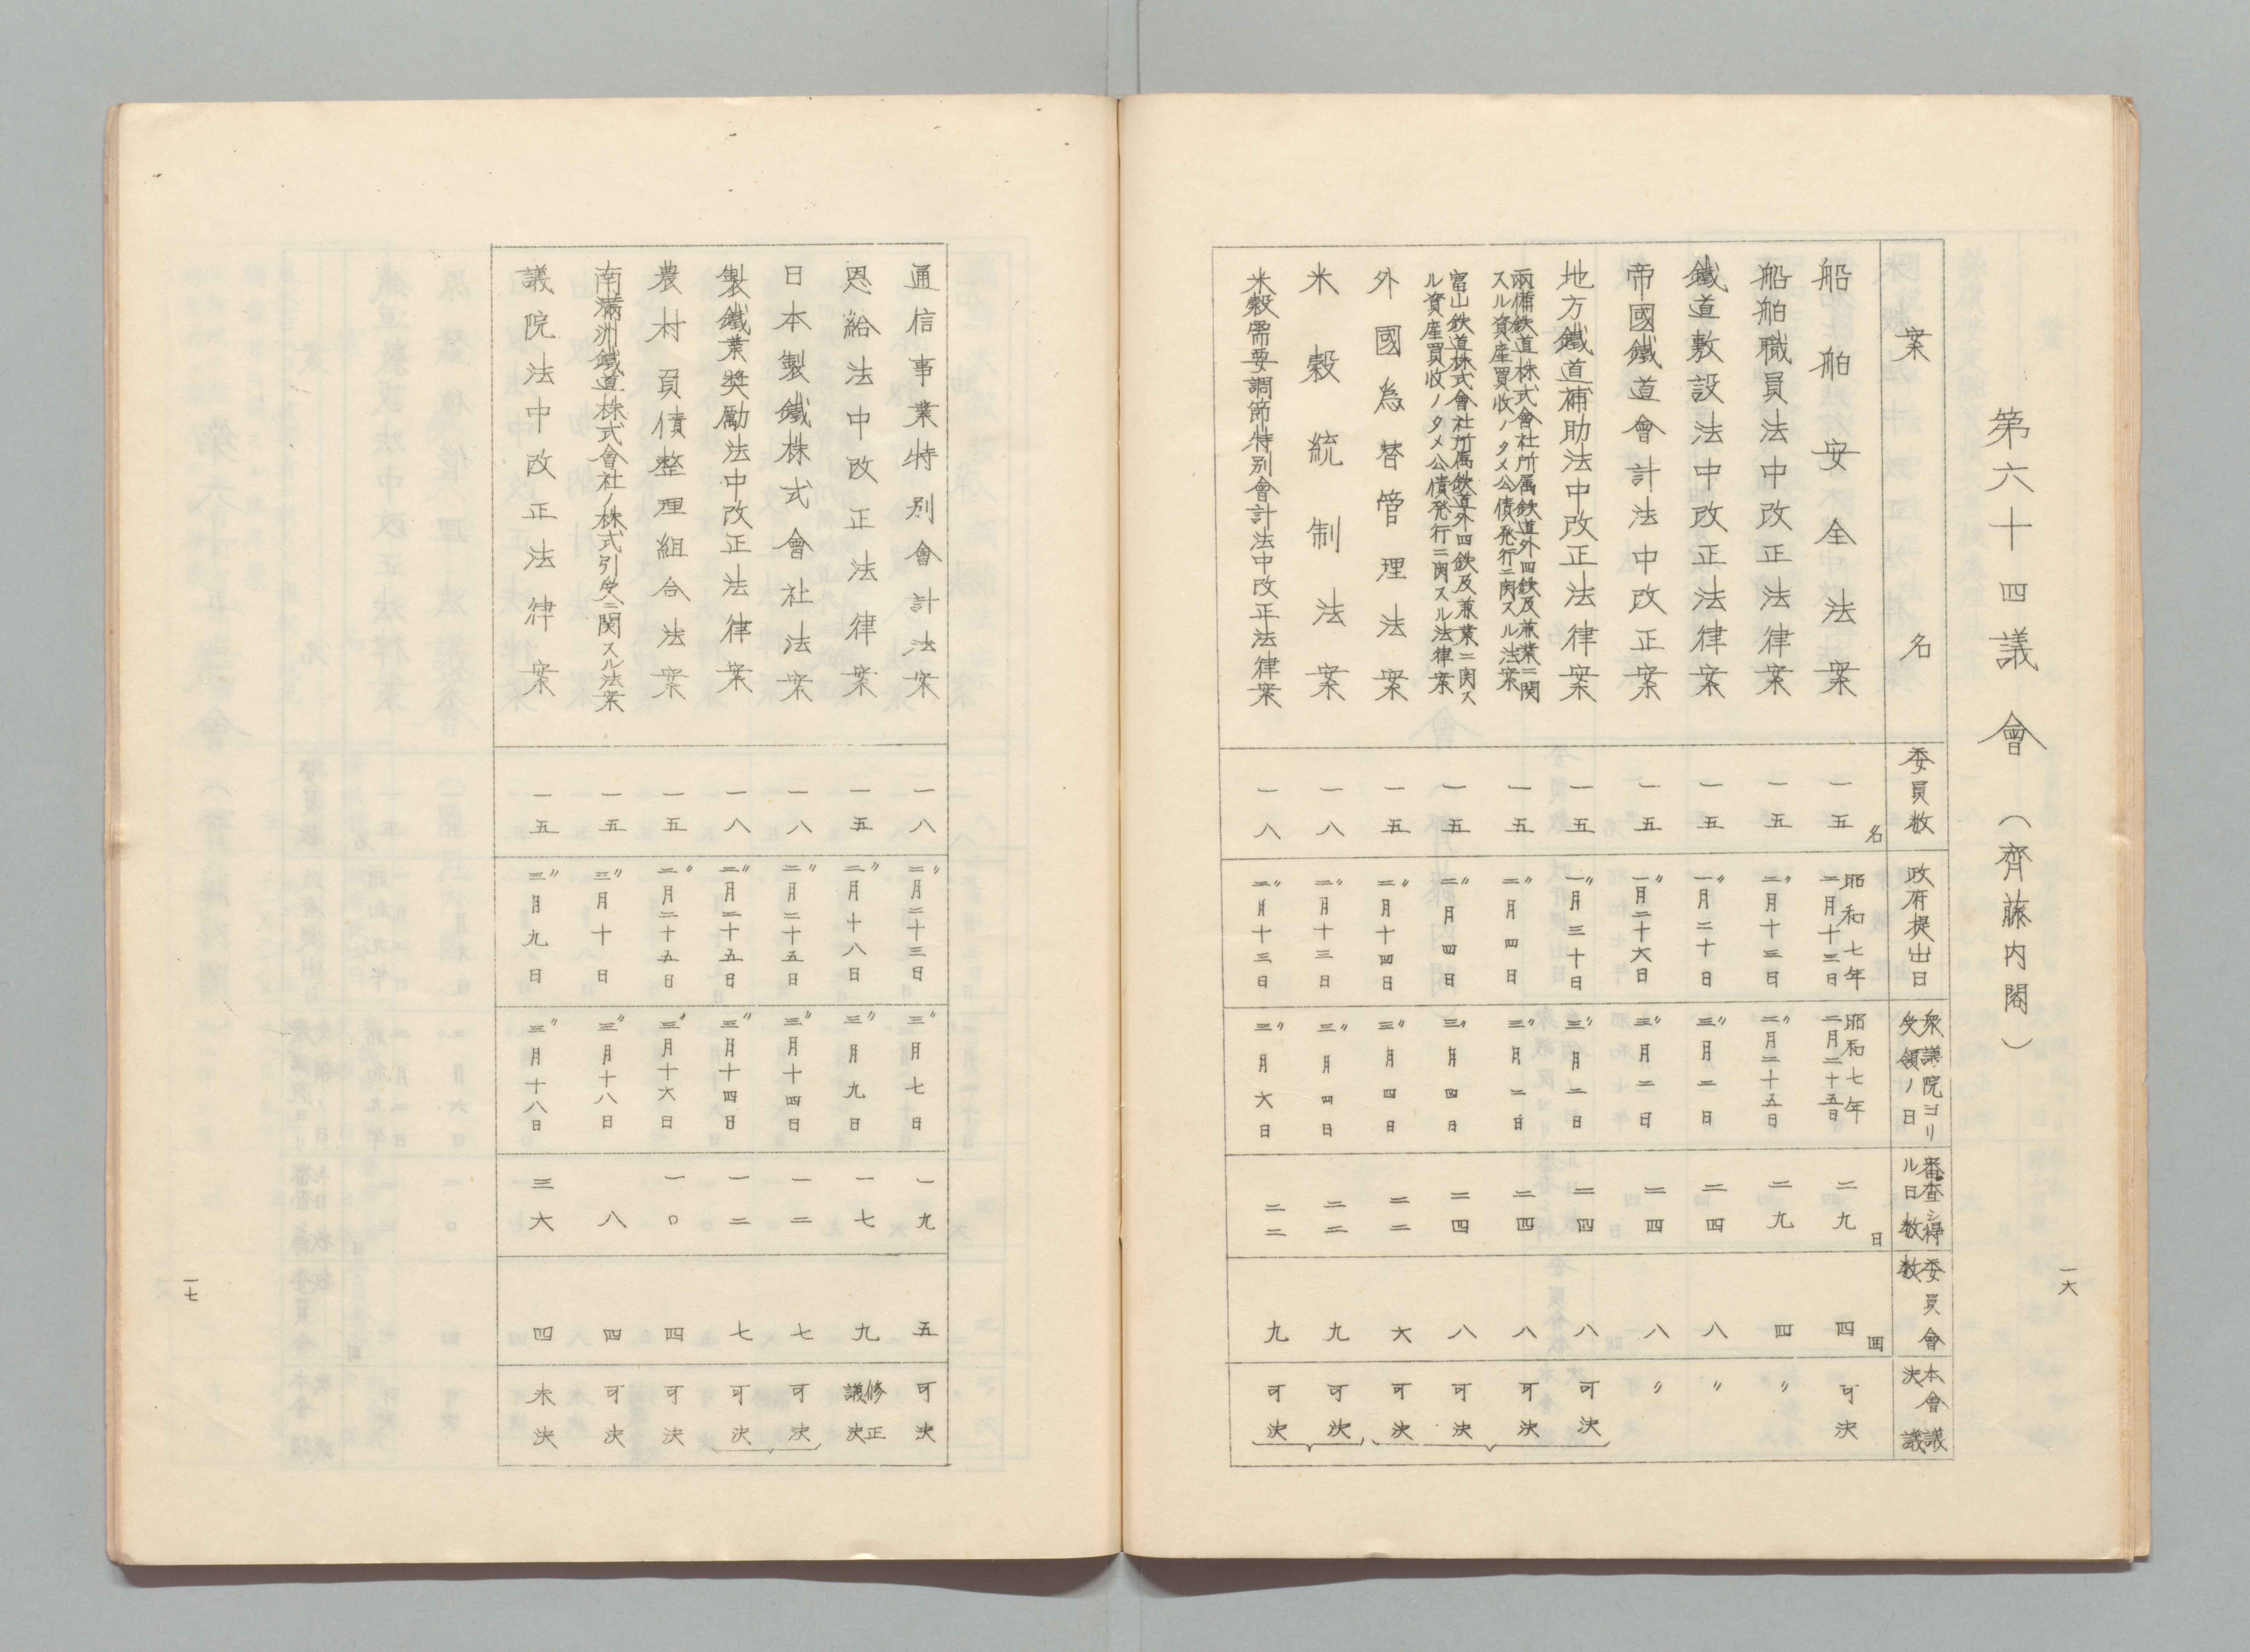 第六十四議會（齊藤内閣）
案名
委員数
政府提出日
衆議院ヨリ
受領ノ日
審査シ得
ル日数
委員會
数
本會議
決議
船舶安全法案
一五名
昭和七年
二月十三日
昭和七年
二月二十五日
二九日
四回
可決
船舶職員法中改正法律案
一五
〃二月十三日
〃二月二十五日
二九
四
〃
鐵道敷設法中改正法律案
一五
〃一月二十日
〃三月二日
二四
八
〃
帝國鐵道會計法中改正案
一五
〃一月二十六日
〃三月二日
二四
八
〃
地方鐵道補助法中改正法律案
一五
〃一月三十日
〃三月二日
二四
八
可決
兩備鉄道株式會社所属鉄道外四鉄及兼業ニ関
スル資産買收ノタメ公債発行ニ関スル法案
一五
〃二月四日
〃三月二日
二四
八
可決
富山鉄道株式會社所属鉄道外四鉄及兼業ニ関ス
ル資産買收ノタメ公債発行ニ関スル法律案
一五
〃二月四日
〃三月四日
二四
八
可決
外國為替管理法案
一五
〃二月十四日
〃三月四日
二二
六
可決
米穀統制法案
一八
〃二月十三日
〃三月四日
二二
九
可決
米穀需要調節特別會計法中改正法律案
一八
〃二月十三日
〃三月六日
二二
九
可決
一六
通信事業特別會計法案
一八
〃二月二十三日
〃三月七日
一九
五
可決
恩給法中改正法律案
一五
〃二月十八日
〃三月九日
一七
九
修正
議決
日本製鐵株式會社法案
一八
〃二月二十五日
〃三月十四日
一二
七
可決
製鐵業奨勵法中改正法律案
一八
〃二月二十五日
〃三月十四日
一二
七
可決
農村負債整理組合法案
一五
〃二月二十五日
〃三月十六日
一〇
四
可決
南滿洲鐵道株式會社ノ株式引受ニ関スル法案
一五
〃三月十日
〃三月十八日
八
四
可決
議院法中改正法律案
一五
〃三月九日
〃三月十八日
三六
四
未決
一七